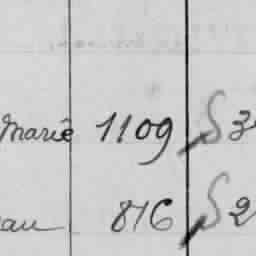 Marie 1109 S 3
au 876 S 2